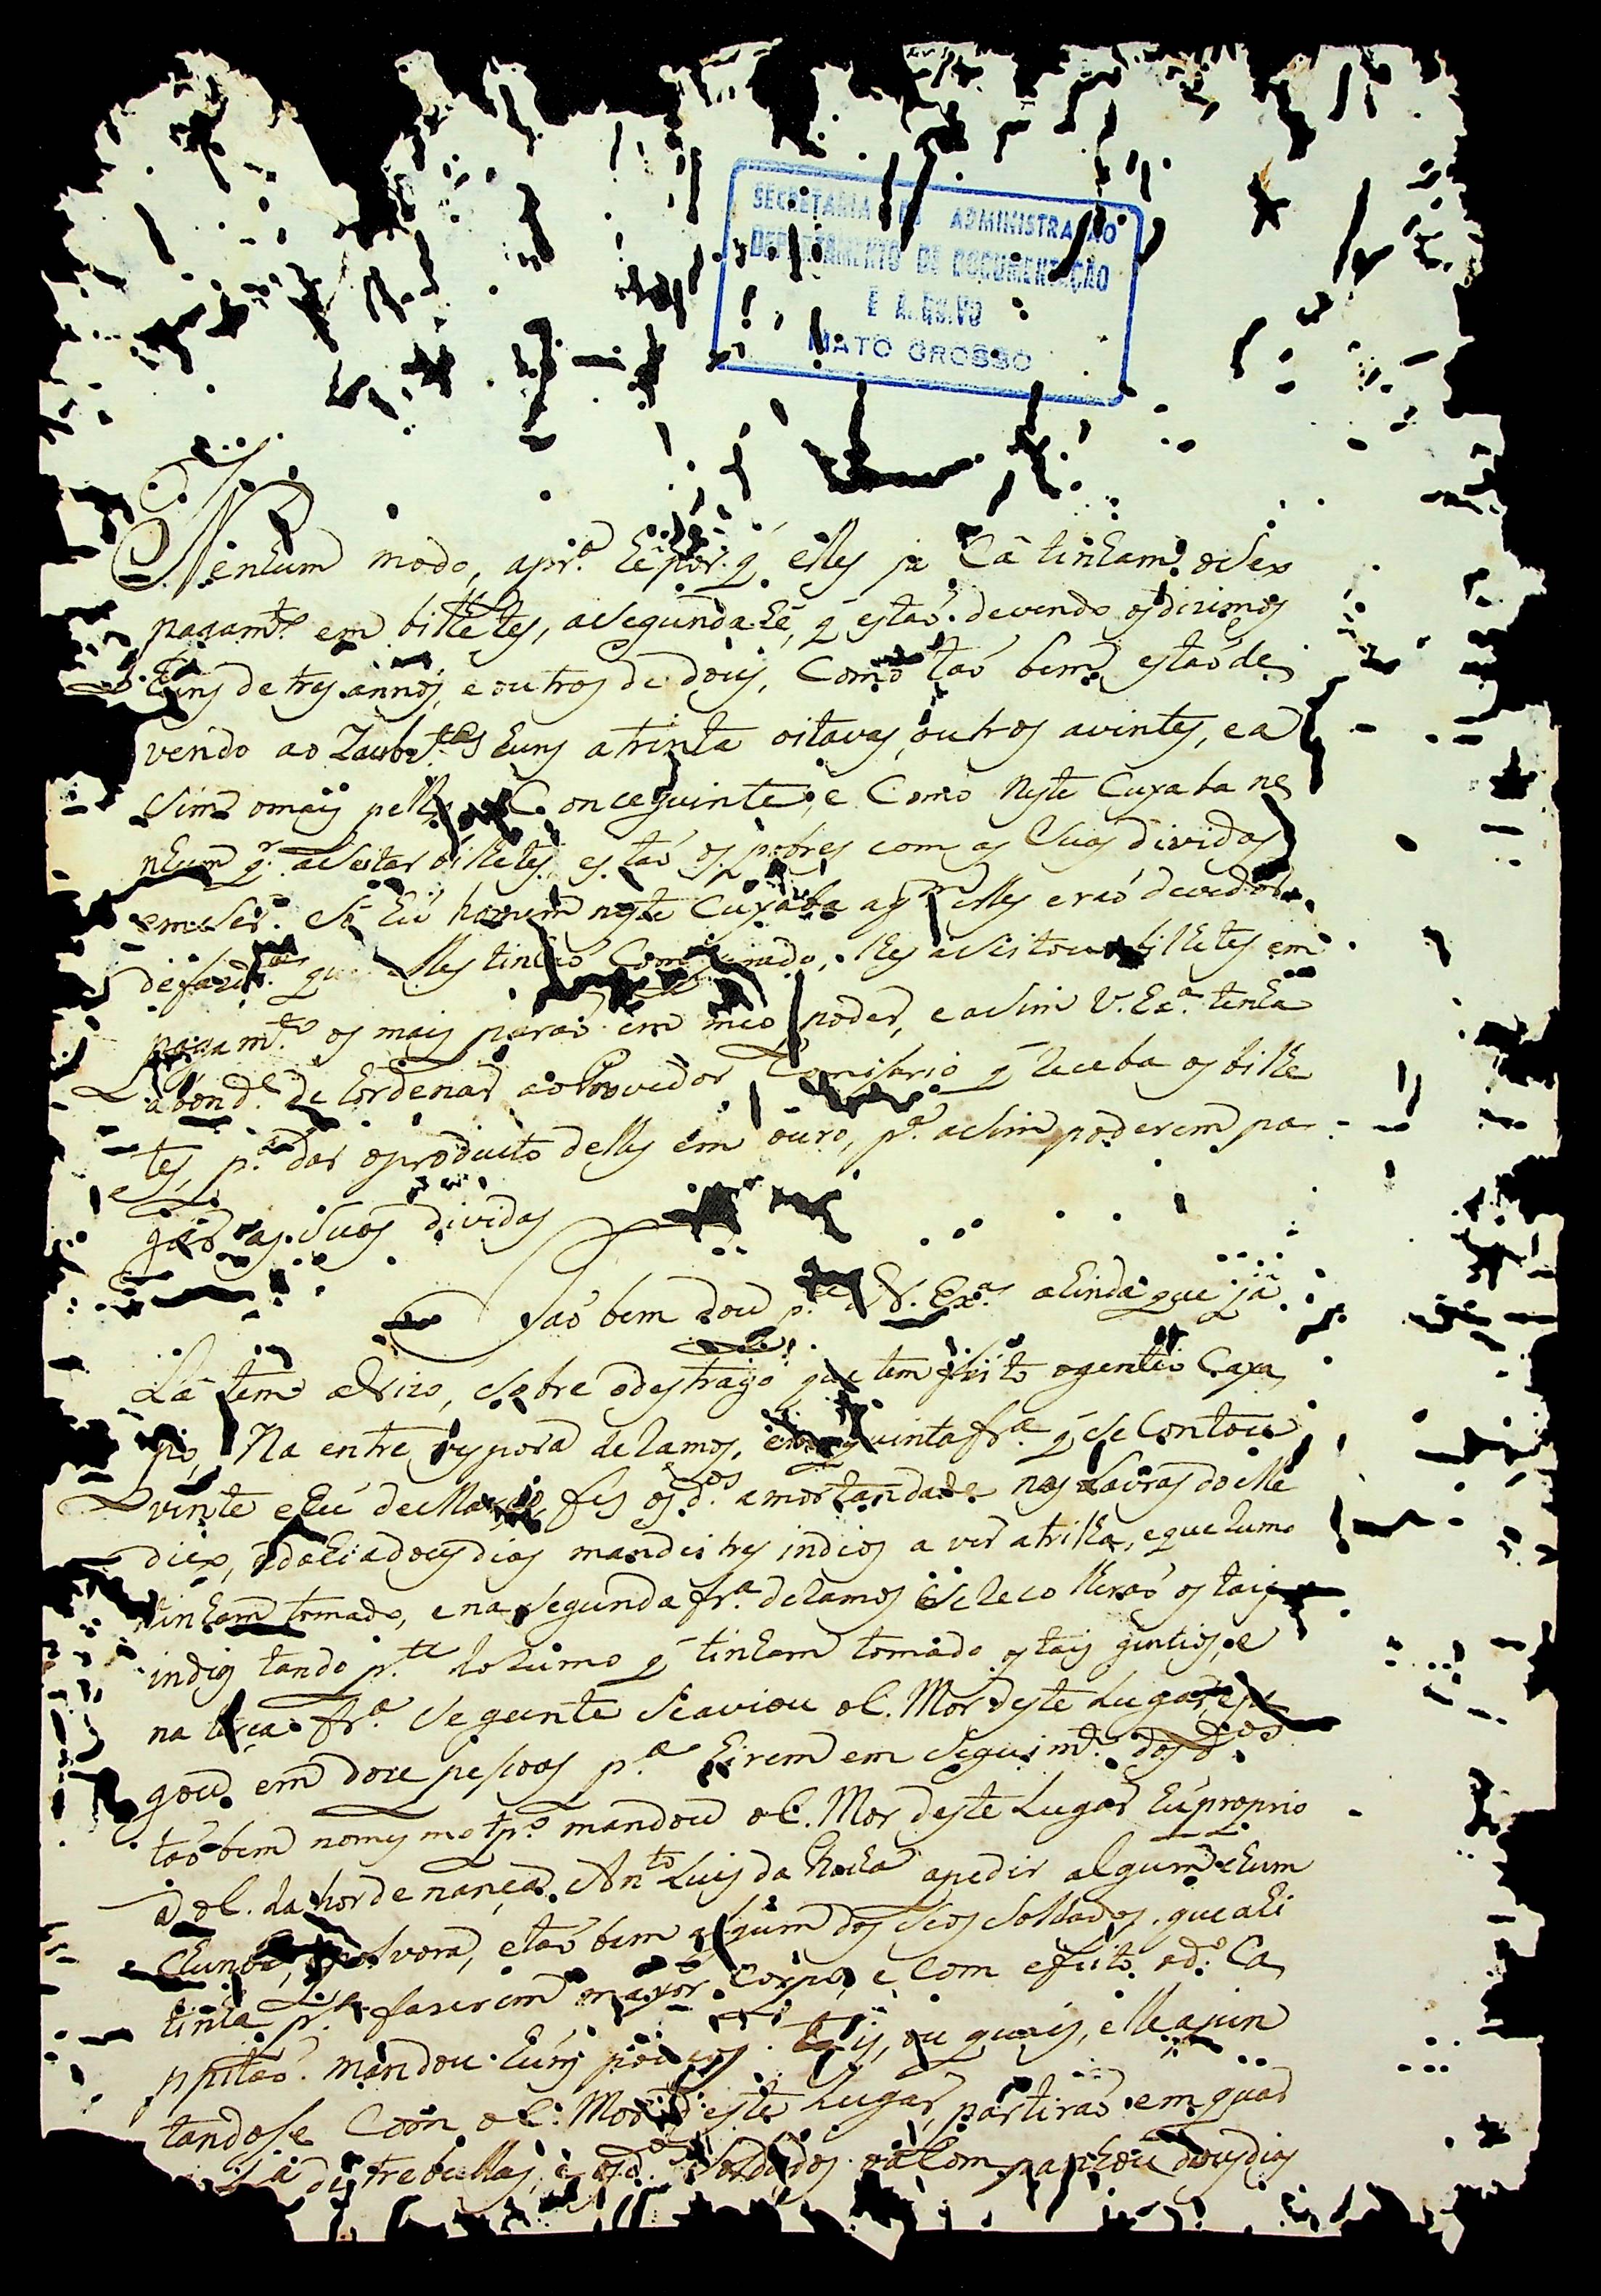 SECRETARIA DE ADMINISTRAÇÃO
DEPARTAMENTO DE DOCUMENTAÇÃO
E ARQUIVO
MATO GROSSO
Nenhum modo, apr.ª hê por q̃ elles ja Câ tinham oSeo
pagamt.º em bilhetes, aSegunda hê, q̃ estaõ devendo osdizimos
huns de tres annos, e outros de dous, Como taõ bem estaõ de
vendo ao huns atrinta oitavas, outros avinte, ea
Sim omais pello Conceguinte, e Como Neste Cuyaba ne
nhum q.r aSeitar bilhetes, estaõ os pobres com as Suas dividas
emSer. Sô hũ homem neste Cuyaba aq.m elles eraõ devedores
defazd.as que elles tinhaõ Comprado, lhes aSeitou bilhetes em
pagamt.º os mais paraõ em meo poder, eaSim V. Ex.ª tenha
abond.e de hordenar aoProvedor Comisario q̃ Receba os bilhe
tes, p.ª dar oproduito delles em ouro, p.ª aSim poderem pa
gar as Suas dividas
Taõ bem dou p.te a V. Ex.ª ahinda que já
Lâ tem aVizo, Sobre odestraço que tem feito ogentio Caya
po, Na entre vespora deRamos, em quinta fr.ª q̃ Se Contou
vinte ehũ deMarço, fes os d.os amortandade nas Lavras doMe
dico, e dahi adous dias mandei tres indios a ver atrilha, eque Rumo
tinham tomado, ena Segunda fr.ª deRamos SeReco lheraõ os tais
indios dando p.te do Rumo q̃ tinham tomado os tais gentios, e
na terça fr.ª Seguinte Seaviou oC. Mor deste Lugar, epe
gou em doze pessoas p.ª hirem em Seguimt.º dos d.os
taõ bem nomesmo tp.º mandou oC. Mor deste Lugar hũ proprio
a oC. da hordenança Ant.º Luis da Rocha apedir algum chum
Chumbo, epolvora, etaõ bem algum dos Seos Soldados, que ali
tinha p.ª fazerem mayor Corpo, e Com efeito od.º Ca
ppitaõ mandou huns poucos Reis, ou quais, elle ajun
tandose Com oC. Mor deste Lugar, partiraõ em quar
ta de trebullas, e os d.os Soldados oaCompanhou dous dias